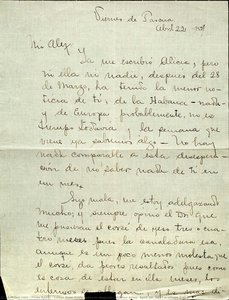 Viernes de Pascua
Abril 22
Mi Alej
Ya me escribió Alicia, pero
ni ella ni nadie, después del 28
de Marzo, ha tenido la menor no-
ticia de ti, de la Habana - nada
y de Europa probablemente, no es
tiempo todavía y la semana que
viene ya sabremos algo - No hay
nada comparable a esta desespera-
ción de no saber nada de ti en
un mes.
Sigo mala, me estoy adelgazando
mucho; y siempre opinó el Dr. que
me pusieran el corsé de yeso tres o cua-
tro meses pues la canaladura esa,
aunque es un poco menos molesta que
el corsé da peores resultados pues como
es cosa de estar en ella meses, los
enfermos se llagan, y